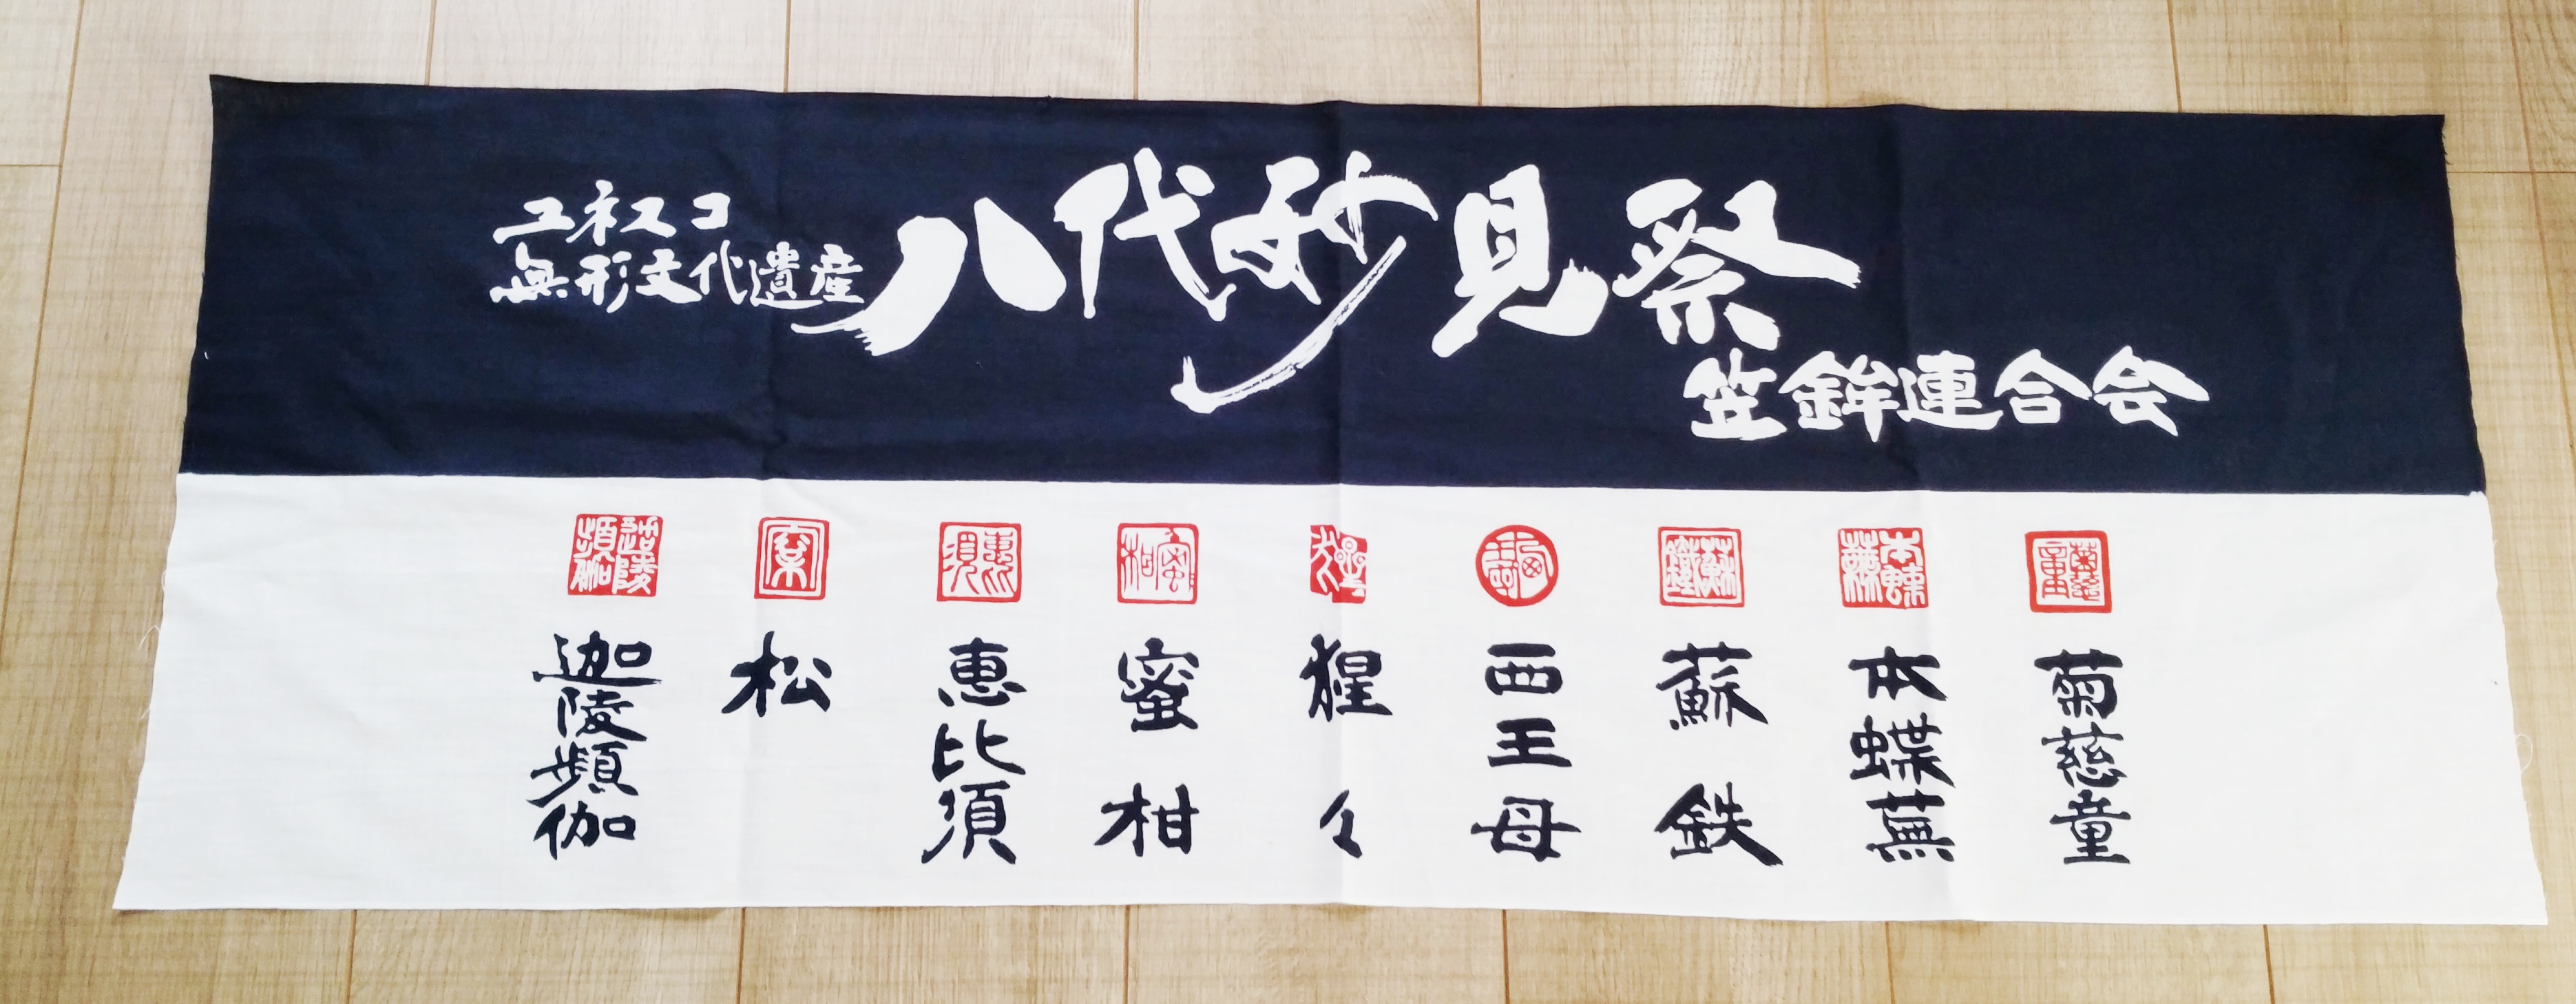 ユネスコ
無形文化遺産
八代妙見祭
笠鉾連合会
菊慈童
本蝶蕪
蘇鉄
西王母
猩々
蜜柑
恵比須
松
迦陵頻伽